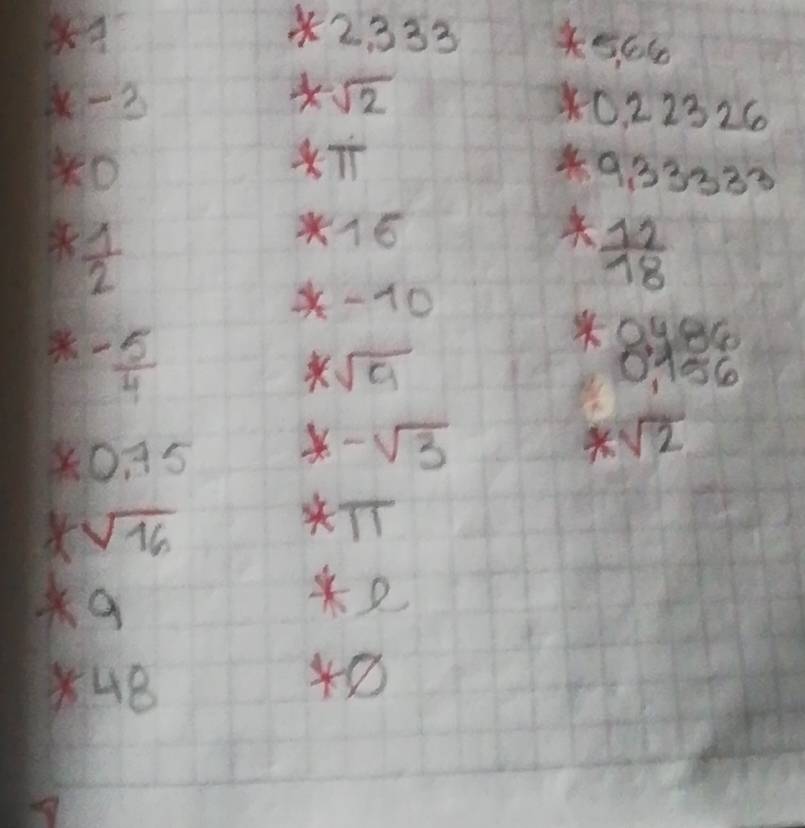 * 1
* -3
* 0
* 1/2
* -5/4
* 0,75
* √16
* 9
* 48
* 2,333
* √2
* π
* 16
* -10
* √9
* -√3
* π
* e
* Ø
* 5,66
* 0,22326
* 9,33333
* 12/18
* √2